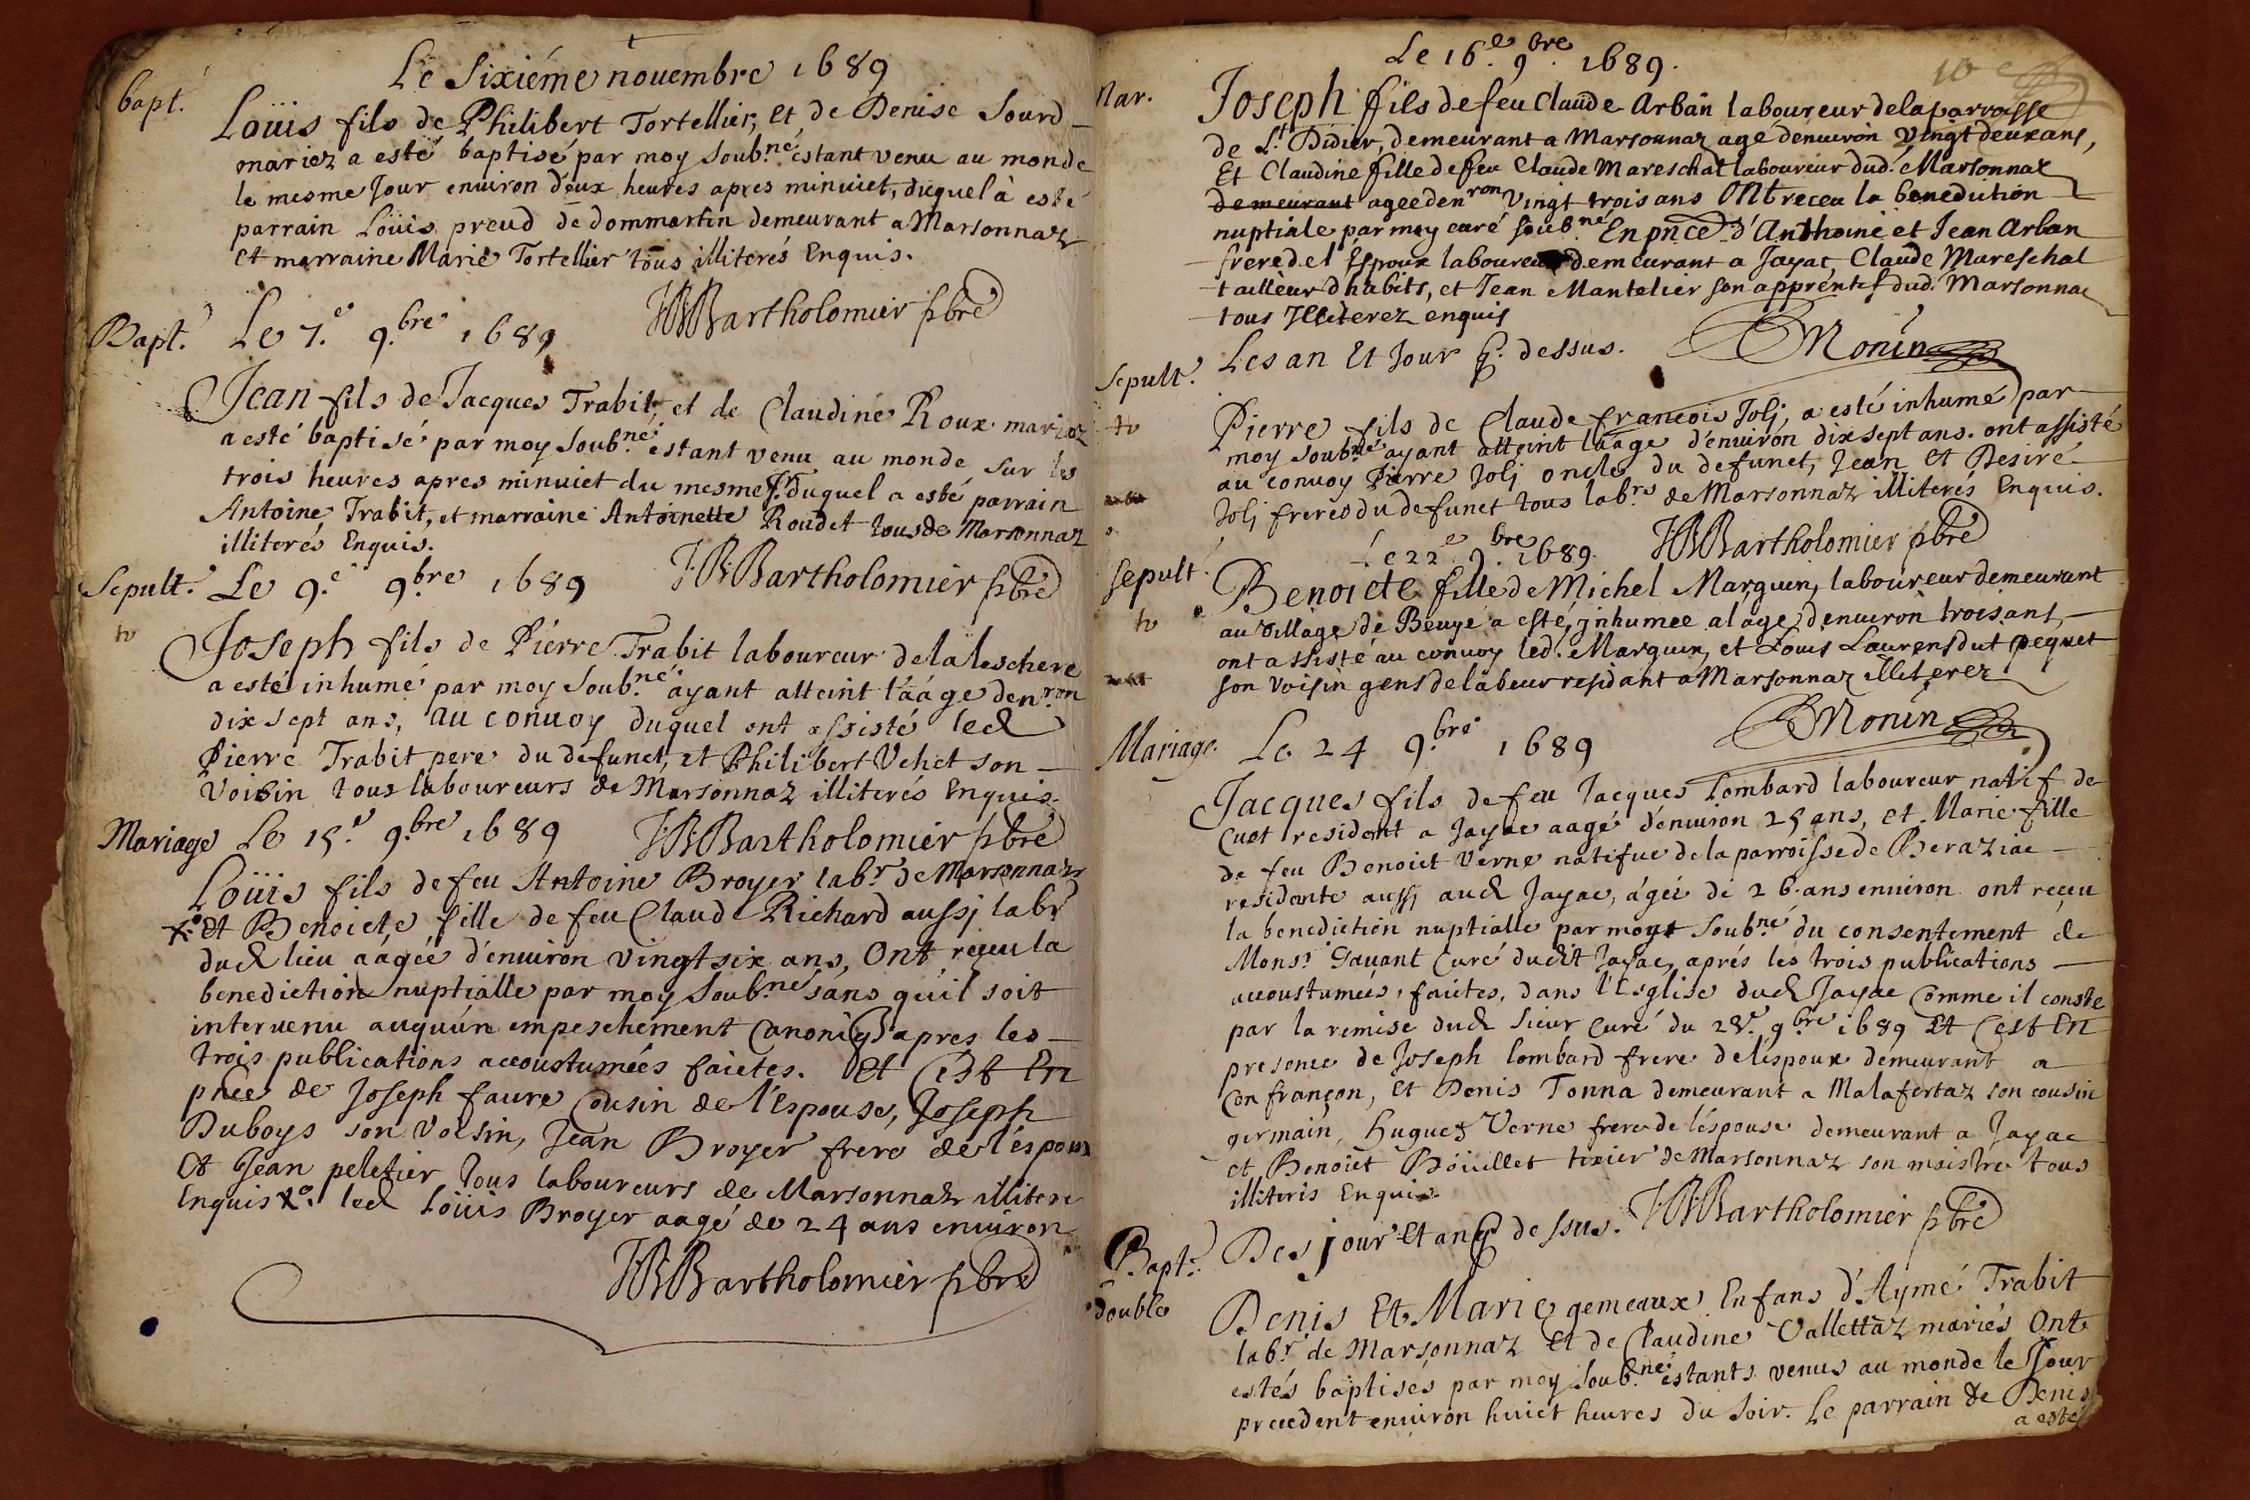 Le Sixiéme nouembre 1689
bapt.
Loüis fils de Philibert Tortellier, et de Denise Sourd
mariez a esté baptisé par moy soub.né estant venu au monde
le mesme Jour enuiron deux heures apres minuict, duquel à esté
parrain Loüis preud de dommartin demeurant a Marsonnaz
et marraine Marie Tortellier tous illiterés Enquis.
JB Bartholomier pbre
Bapt. Le 7.e 9.bre 1689
Jean fils de Jacques Trabit, et de Claudine Roux mariez
a esté baptisé par moy soub.né estant venu au monde sur les
trois heures apres minuict du mesme Jr. duquel a esté parrain
Antoine Trabit, et marraine Antoinette Roudet tous de Marsonnaz
illiterés Enquis.
JB Bartholomier pbre
Sepult. Le 9.e 9.bre 1689
Joseph fils de Pierre Trabit laboureur de la leschere
a esté inhumé par moy soub.né ayant atteint l'aâge den.ron
dix sept ans, au conuoy duquel ont assisté led
Pierre Trabit pere du defunct, et Philibert Vehet son
voisin tous laboureurs de Marsonnaz illiterés Enquis.
JB Bartholomier pbre
Mariage Le 15.e 9.bre 1689
Loüis fils de feu Antoine Broyer lab.r de Marsonnaz
x.o et Benoicte fille de feu Claude Richard aussj labr
dud lieu aâgée d'enuiron vingt six ans, Ont reçeu la
benediction nuptialle par moy soub.né sans qu'il soit
interuenu auquún empeschement canoniq apres les
trois publications accoustumées faictes. Et C'est En
pnce de Joseph faure cousin de l'Espouse, Joseph
Duboys son voisin, Jean Broyer frere de l'éspoux
Et Jean peletier tous laboureurs de Marsonnaz illitere
Enquis x.o led Loüis Broyer aagé de 24 ans enuiron
JB Bartholomier pbre
Le 16.e 9.bre 1689.
10
Mar.
Joseph fils de feu Claude Arban laboureur de la parroisse
de St Didier, demeurant a Marsonnaz agé denuiron Vingt deux ans,
Et Claudine fille de feu Claude Mareschal laboureur dud. Marsonnaz
demeurant agee den ron Vingt trois ans Ont receu la benediction
nuptiale par moy curé soub.né En pnce d'Anthoine et Jean Arban
frere de l'Espoux laboureur demeurant a Jayac, Claude Mareschal
tailleur d'habits, et Jean Mantelier son apprentif dud. Marsonnaz
tous Illiterez enquis
Monin
Sepult. Les an Et Jour q. dessus.
Pierre fils de Claude francois Jolj, a esté inhumé par
moy soub.né ayant atteint l'aâge d'enuirón dix sept ans. ont assisté
au conuoy Pierre Jolj oncle du defunct, Jean Et Desiré
Jolj freres du defunct tous lab.rs de Marsonnaz illiterés Enquis.
JB Bartholomier pbre
Le 22.e 9.bre 1689
Sepult.
Benoicte fille de Michel Marguin, laboureur demeurant
au village de Beuye a esté, jnhumee a l'age denuiron trois ant,
ont assisté au conuoy led. Marguin, et Louis Laurens dut pequet
son voisin gens de labeur residant a Marsonnaz illiterez
Monin
Mariage. Le 24 9.bre 1689
Jacques fils de feu Jacques Lombard laboureur natif de
Cuet resident a Jayac aagé d'enuiron 25 ans, et Marie fille
de feu Benoict Verne natifue de la parroisse de Beraziac
residente aussj aud Jayac, âgée de 26. ans enuiron ont reçeu
la benediction nuptialle par moy soub.né du consentement de
Mons.r Dauant Curé dudit Jayac, aprés les trois publications
accoustumées, faictes, dans l'Esglise dud Jayac Comme il conste
par la remise dud Sieur Curé du 28.e 9.bre 1689 Et C'est En
presence de Joseph lombard frere de l'éspoux demeurant a
Confrançon, Et Denis Tonna demeurant a Malafertaz son cousin
germain, Hugues Verne frere de l'éspouse demeurant a Jayac
et Benoict Bóüillet tixier de Marsonnaz son maistre tous
illiteris Enquis.
JB Bartholomier pbre
Bapt. double
Des jour Et an q dessus.
Denis Et Marie gemeaux Enfans d'Aymé Trabit
lab.r de Marsonnaz Et de Claudine Vallettaz mariés Ont
estés baptisés par moy soub.né estants venus au monde le Jour
precedent enuiron huict heures du soir. Le parrain de Denis
a esté